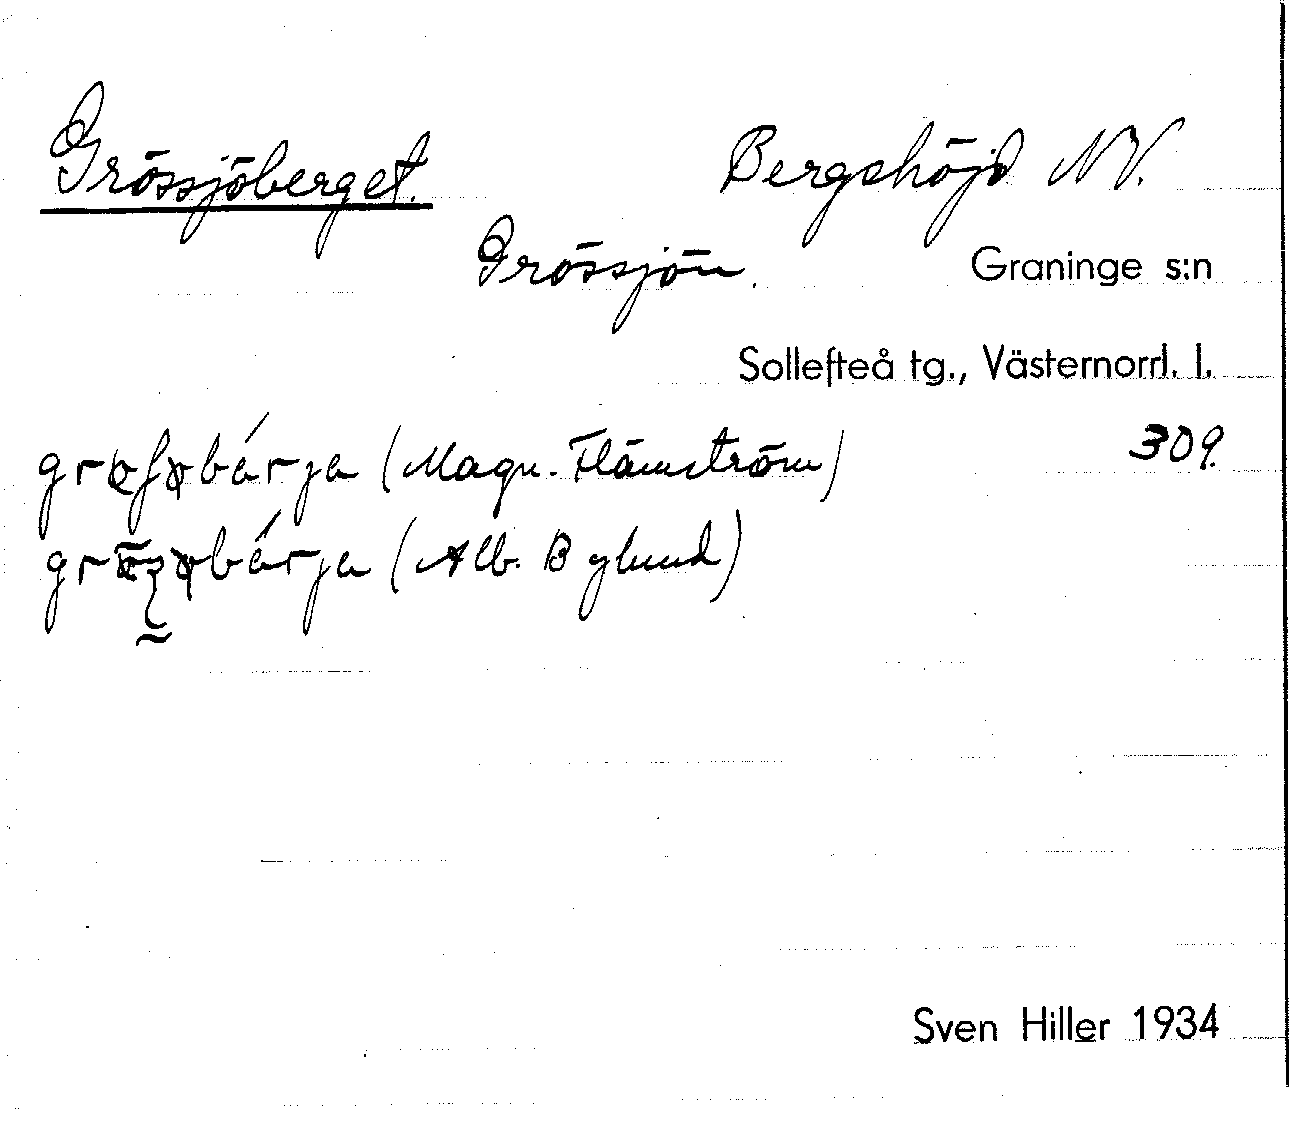 Grössjöberget. Bergshöjd NV.
Grössjön. Graninge s:n
Sollefteå tg., Västernorrl. l.
309.
(Magn. Flämström)
(Alb. Bylund)
Sven Hiller 1934